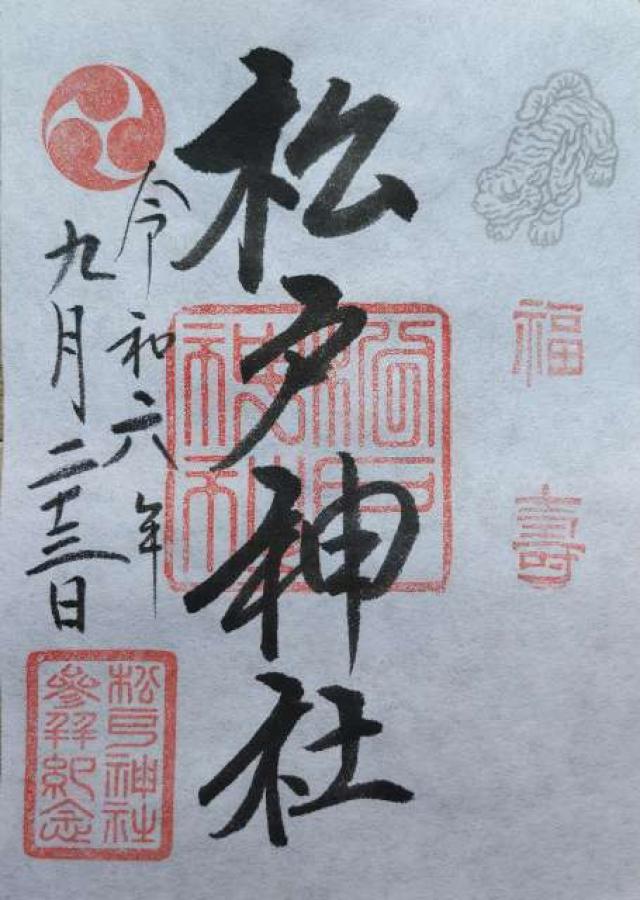 福壽
松戸神社
令和六年
九月二十三日
松戸神社
松戸神社
參拜紀念